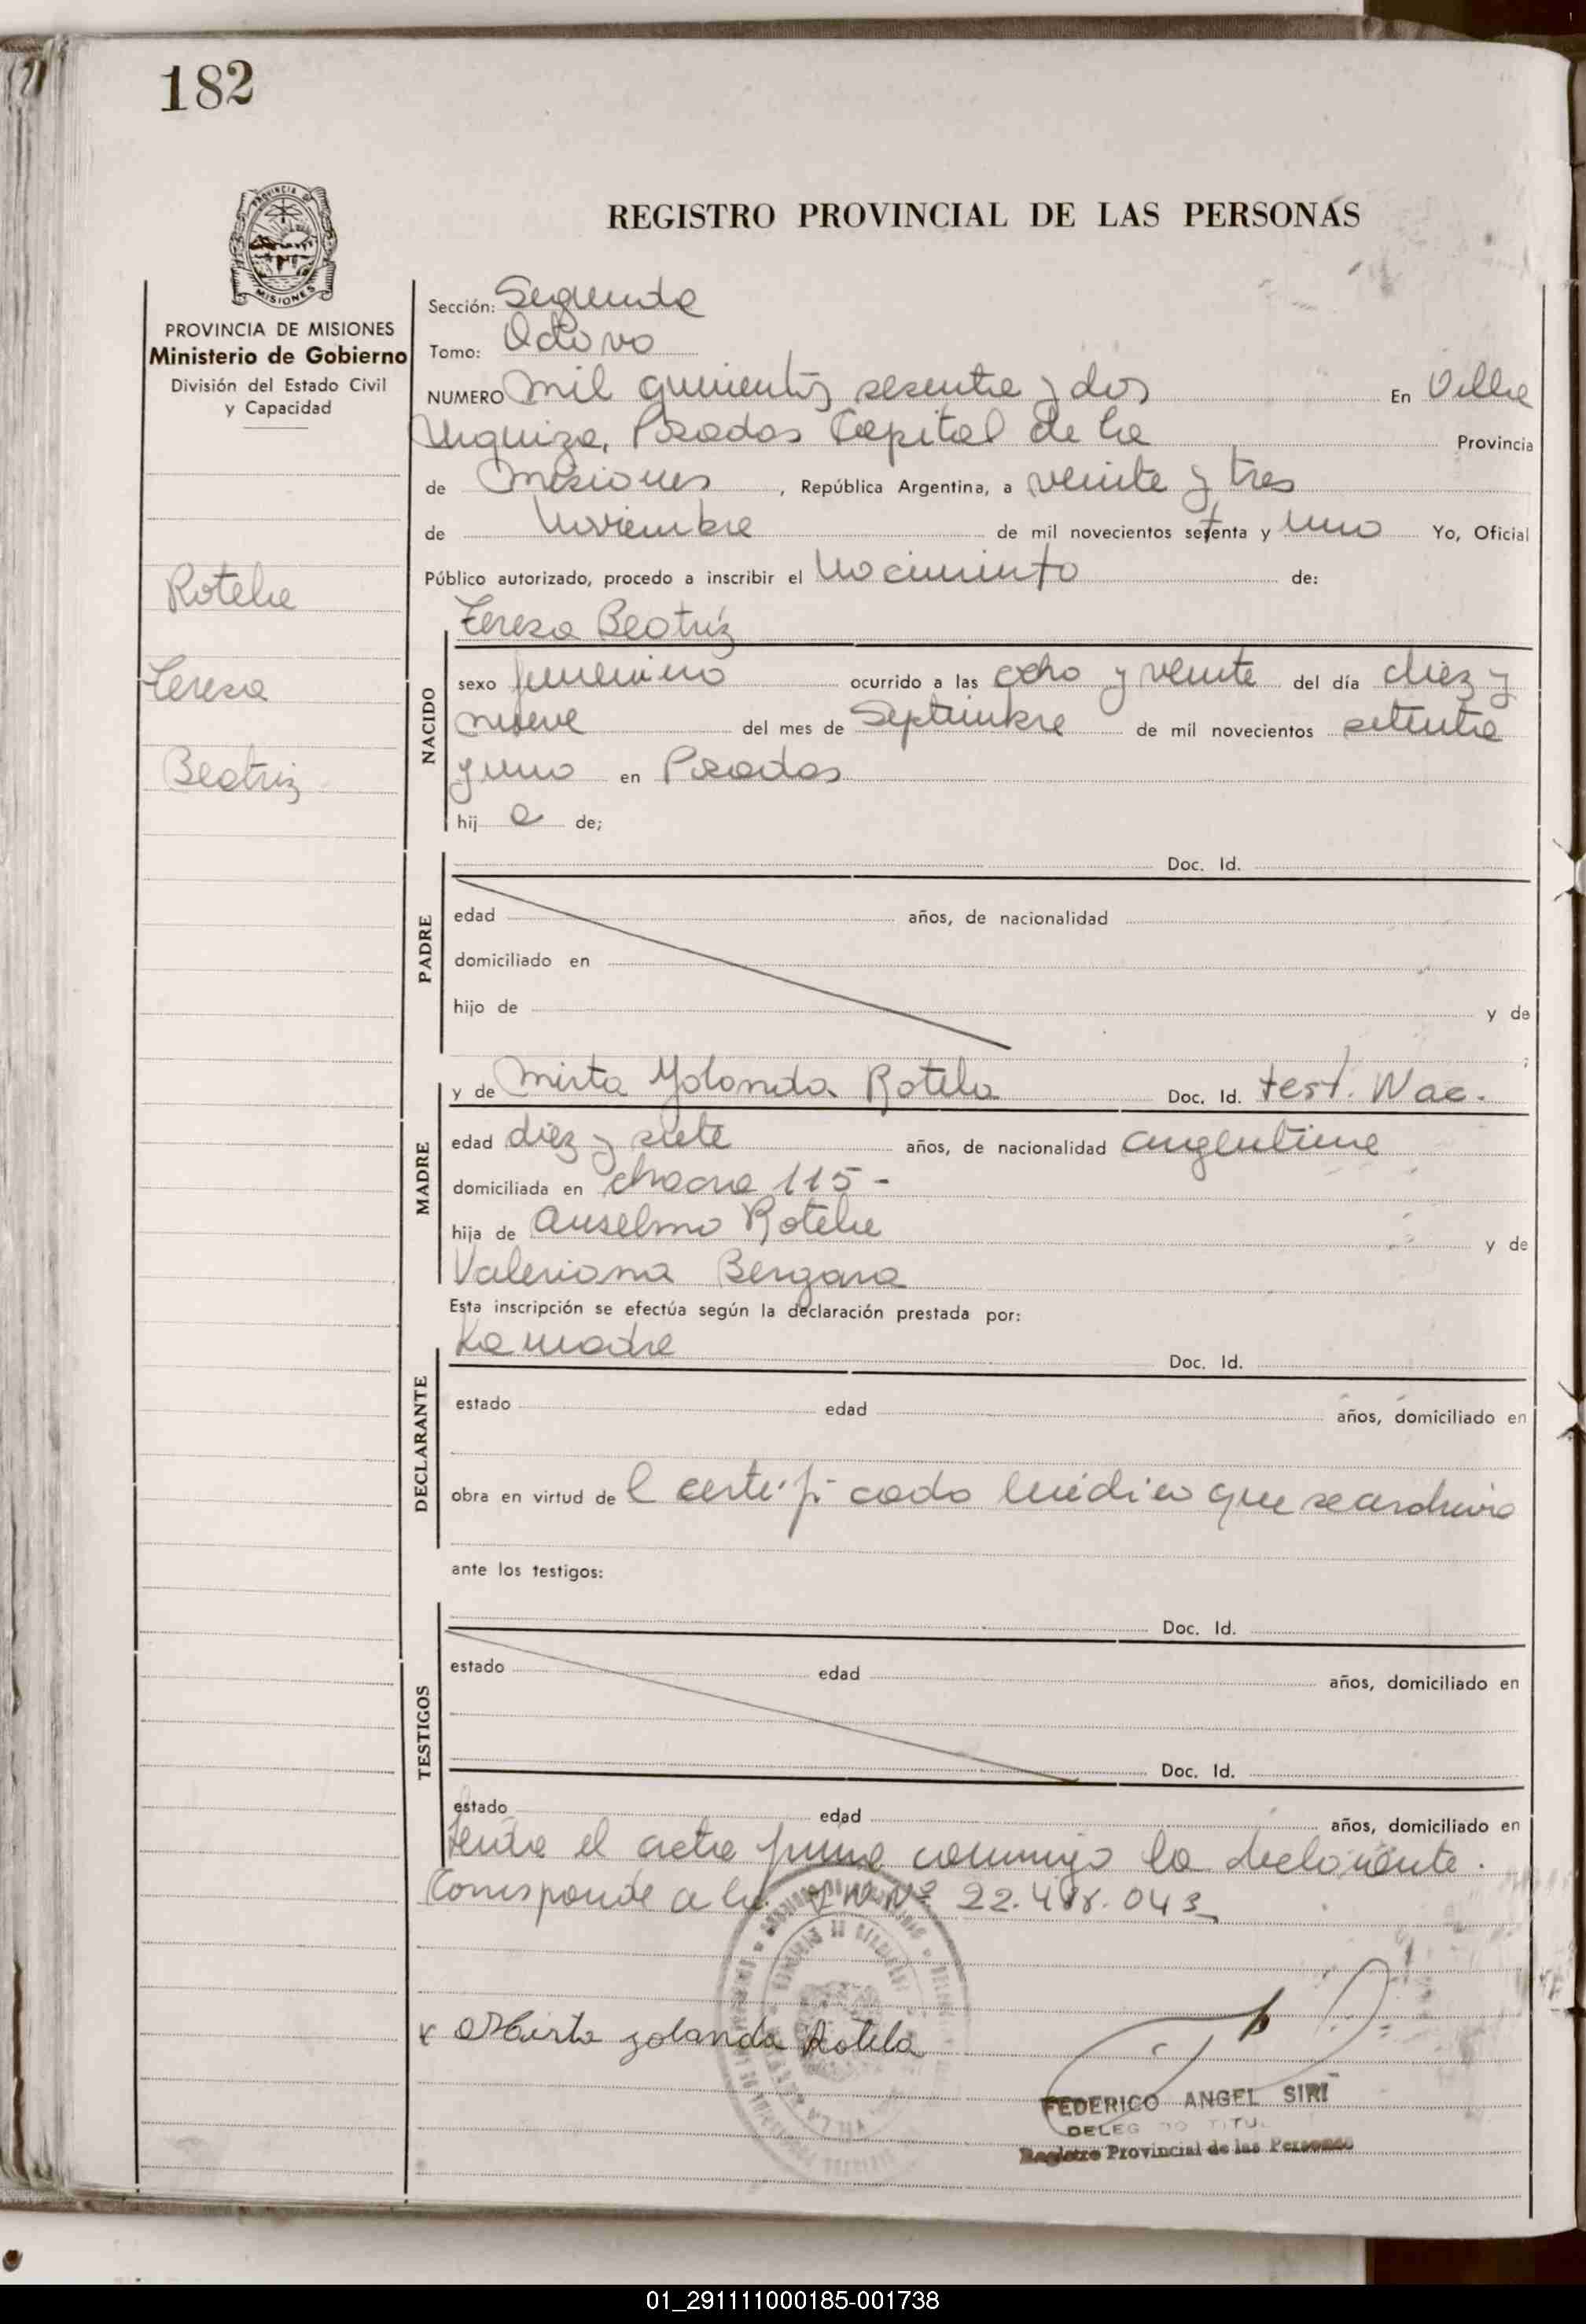 182
PROVINCIA DE MISIONES
MISIONES
PROVINCIA DE MISIONES
Ministerio de Gobierno
División del Estado Civil
y Capacidad
Rotela
Teresa
Beatriz
REGISTRO PROVINCIAL DE LAS PERSONAS
Sección: Segunda
Tomo: Octavo
NUMERO mil quinientos sesenta y dos En Villa
Urquiza, Posadas Capital de la Provincia
de Misiones, República Argentina, a veinte y tres
de Noviembre de mil novecientos setenta y uno Yo, Oficial
Público autorizado, procedo a inscribir el Nacimiento de:
NACIDO
Teresa Beatriz
sexo femenino ocurrido a las ocho y veinte del día diez y
nueve del mes de Septiembre de mil novecientos setenta
y uno en Posadas
hij a de;
PADRE
Doc. Id.
edad años, de nacionalidad
domiciliado en
hijo de y de
;
MADRE
y de Mirta Yolanda Rotela Doc. Id. test. Nac.
edad diez y siete años, de nacionalidad argentina
domiciliada en chacra 115-
hija de Anselmo Rotela y de
Valeriana Bergara
Esta inscripción se efectúa según la declaración prestada por:
DECLARANTE
La madre Doc. Id.
estado edad años, domiciliado en
obra en virtud de l certificado médico que se archiva
ante los testigos:
TESTIGOS
Doc. Id.
estado edad años, domiciliado en
Doc. Id.
estado edad años, domiciliado en
Leída el acta firma conmigo la declarante.
Corresponde a la Nº 22.
x Mirta Yolanda Rotela
FEDERICO ANGEL SIRI
DELEG DO TITU
Registro Provincial de las Personas
01_291111000185-001738